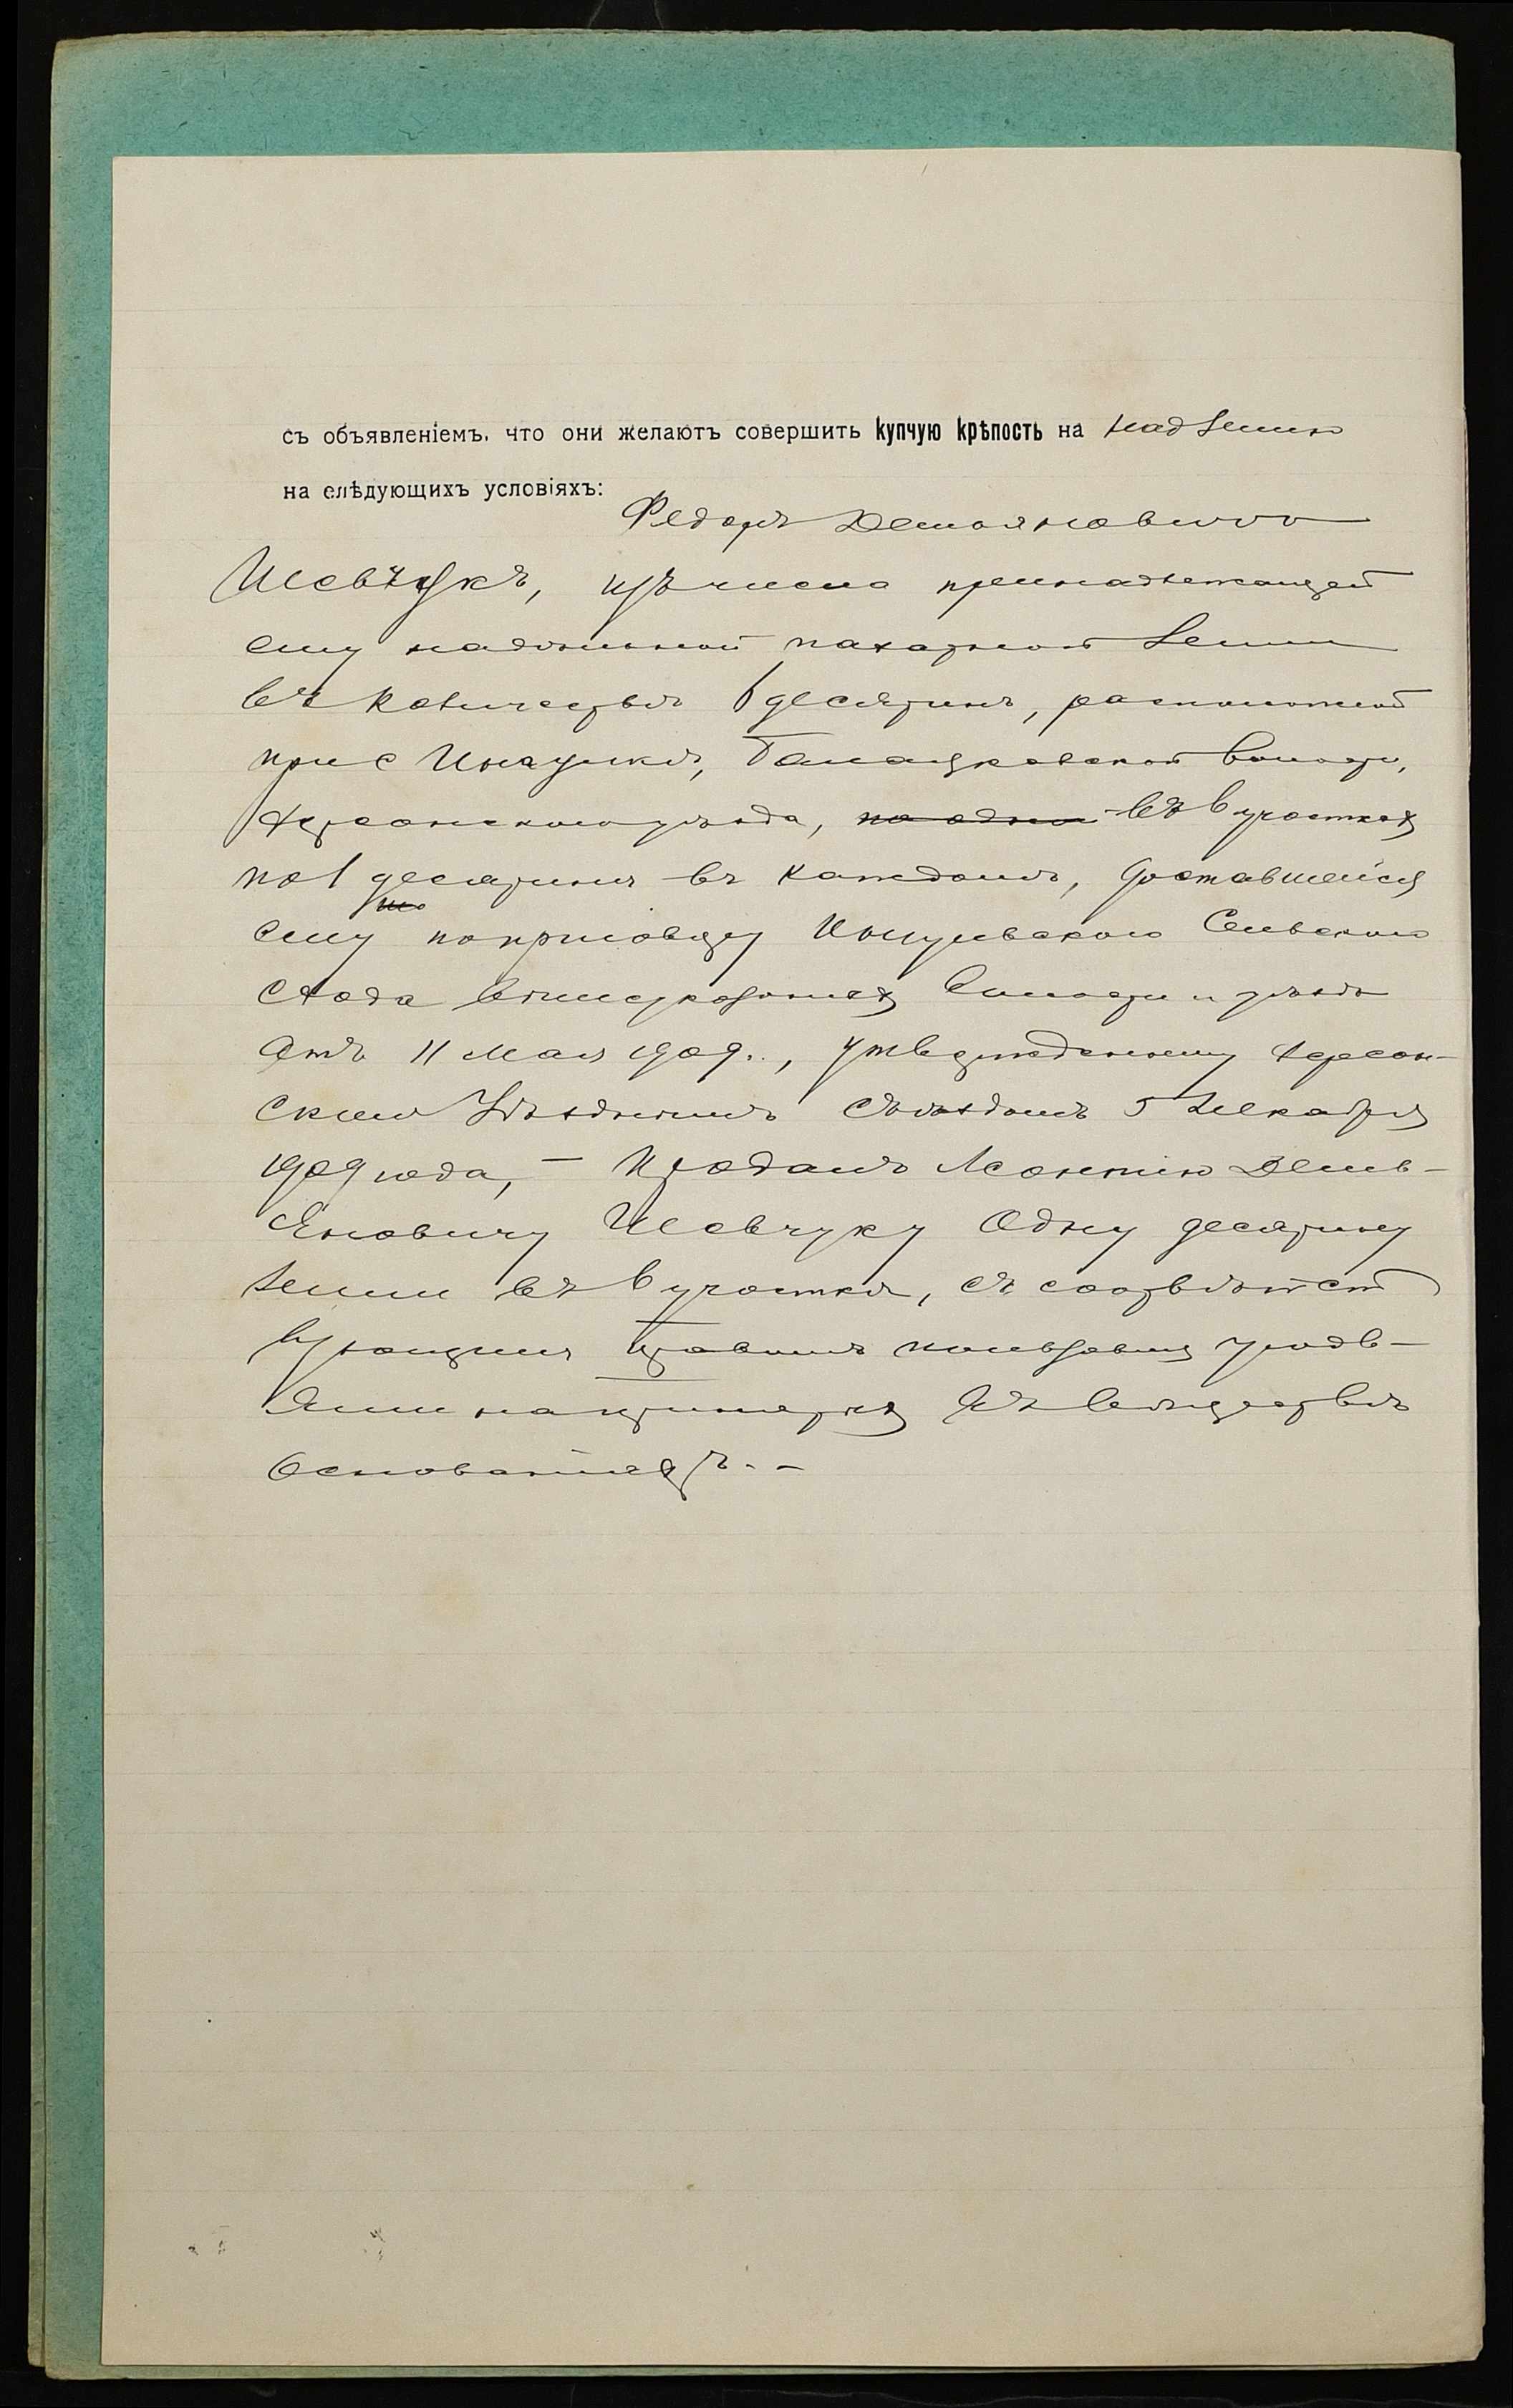 съ объявленіемъ, что они желаютъ совершить купчую крѣпость на над землю
на слѣдующихъ условіяхъ:
Федоръ Демьяновичъ
Шевчукъ, изъ числа принадлежащей
ему надѣльной пахатной земли
въ количествѣ 6 десятинъ, расположенной
при с Ингулкѣ, волости,
Херсонскаго уѣзда, по одной въ 6 участкахъ
по 1 десятинѣ въ каждомъ, доставшейся
ему по приговору Ингульскаго Сельскаго
схода волости и уѣзда
отъ 11 Мая 1909., утвержденному Херсон-
скимъ Уѣзднымъ Съѣздомъ 5 Декабря
1909 года, - продалъ Леонтію Демь-
яновичу Шевчуку одну десятину
земли въ 6 участкѣ, съ соотвѣтст
вующимъ правомъ пользованія угодь-
ями на
основаніяхъ. -